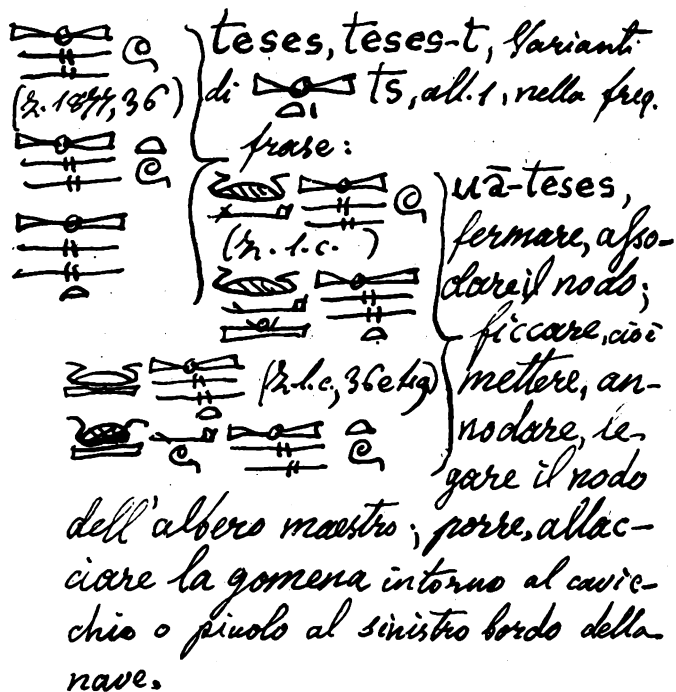 teses, teses-t, Varianti
(Z. 1877, 36) di ts, all. 1, nella freq.
frase:
uā-teses,
(Z. l.c. ) fermare, asso-
dare il nodo;
ficcare, cioè
(Z. l.c., 36 e seg) mettere, an-
nodare, le-
gare il nodo
dell'albero maestro; porre, allac-
ciare la gomena intorno al cavic-
chio o piuolo al sinistro bordo della
nave.